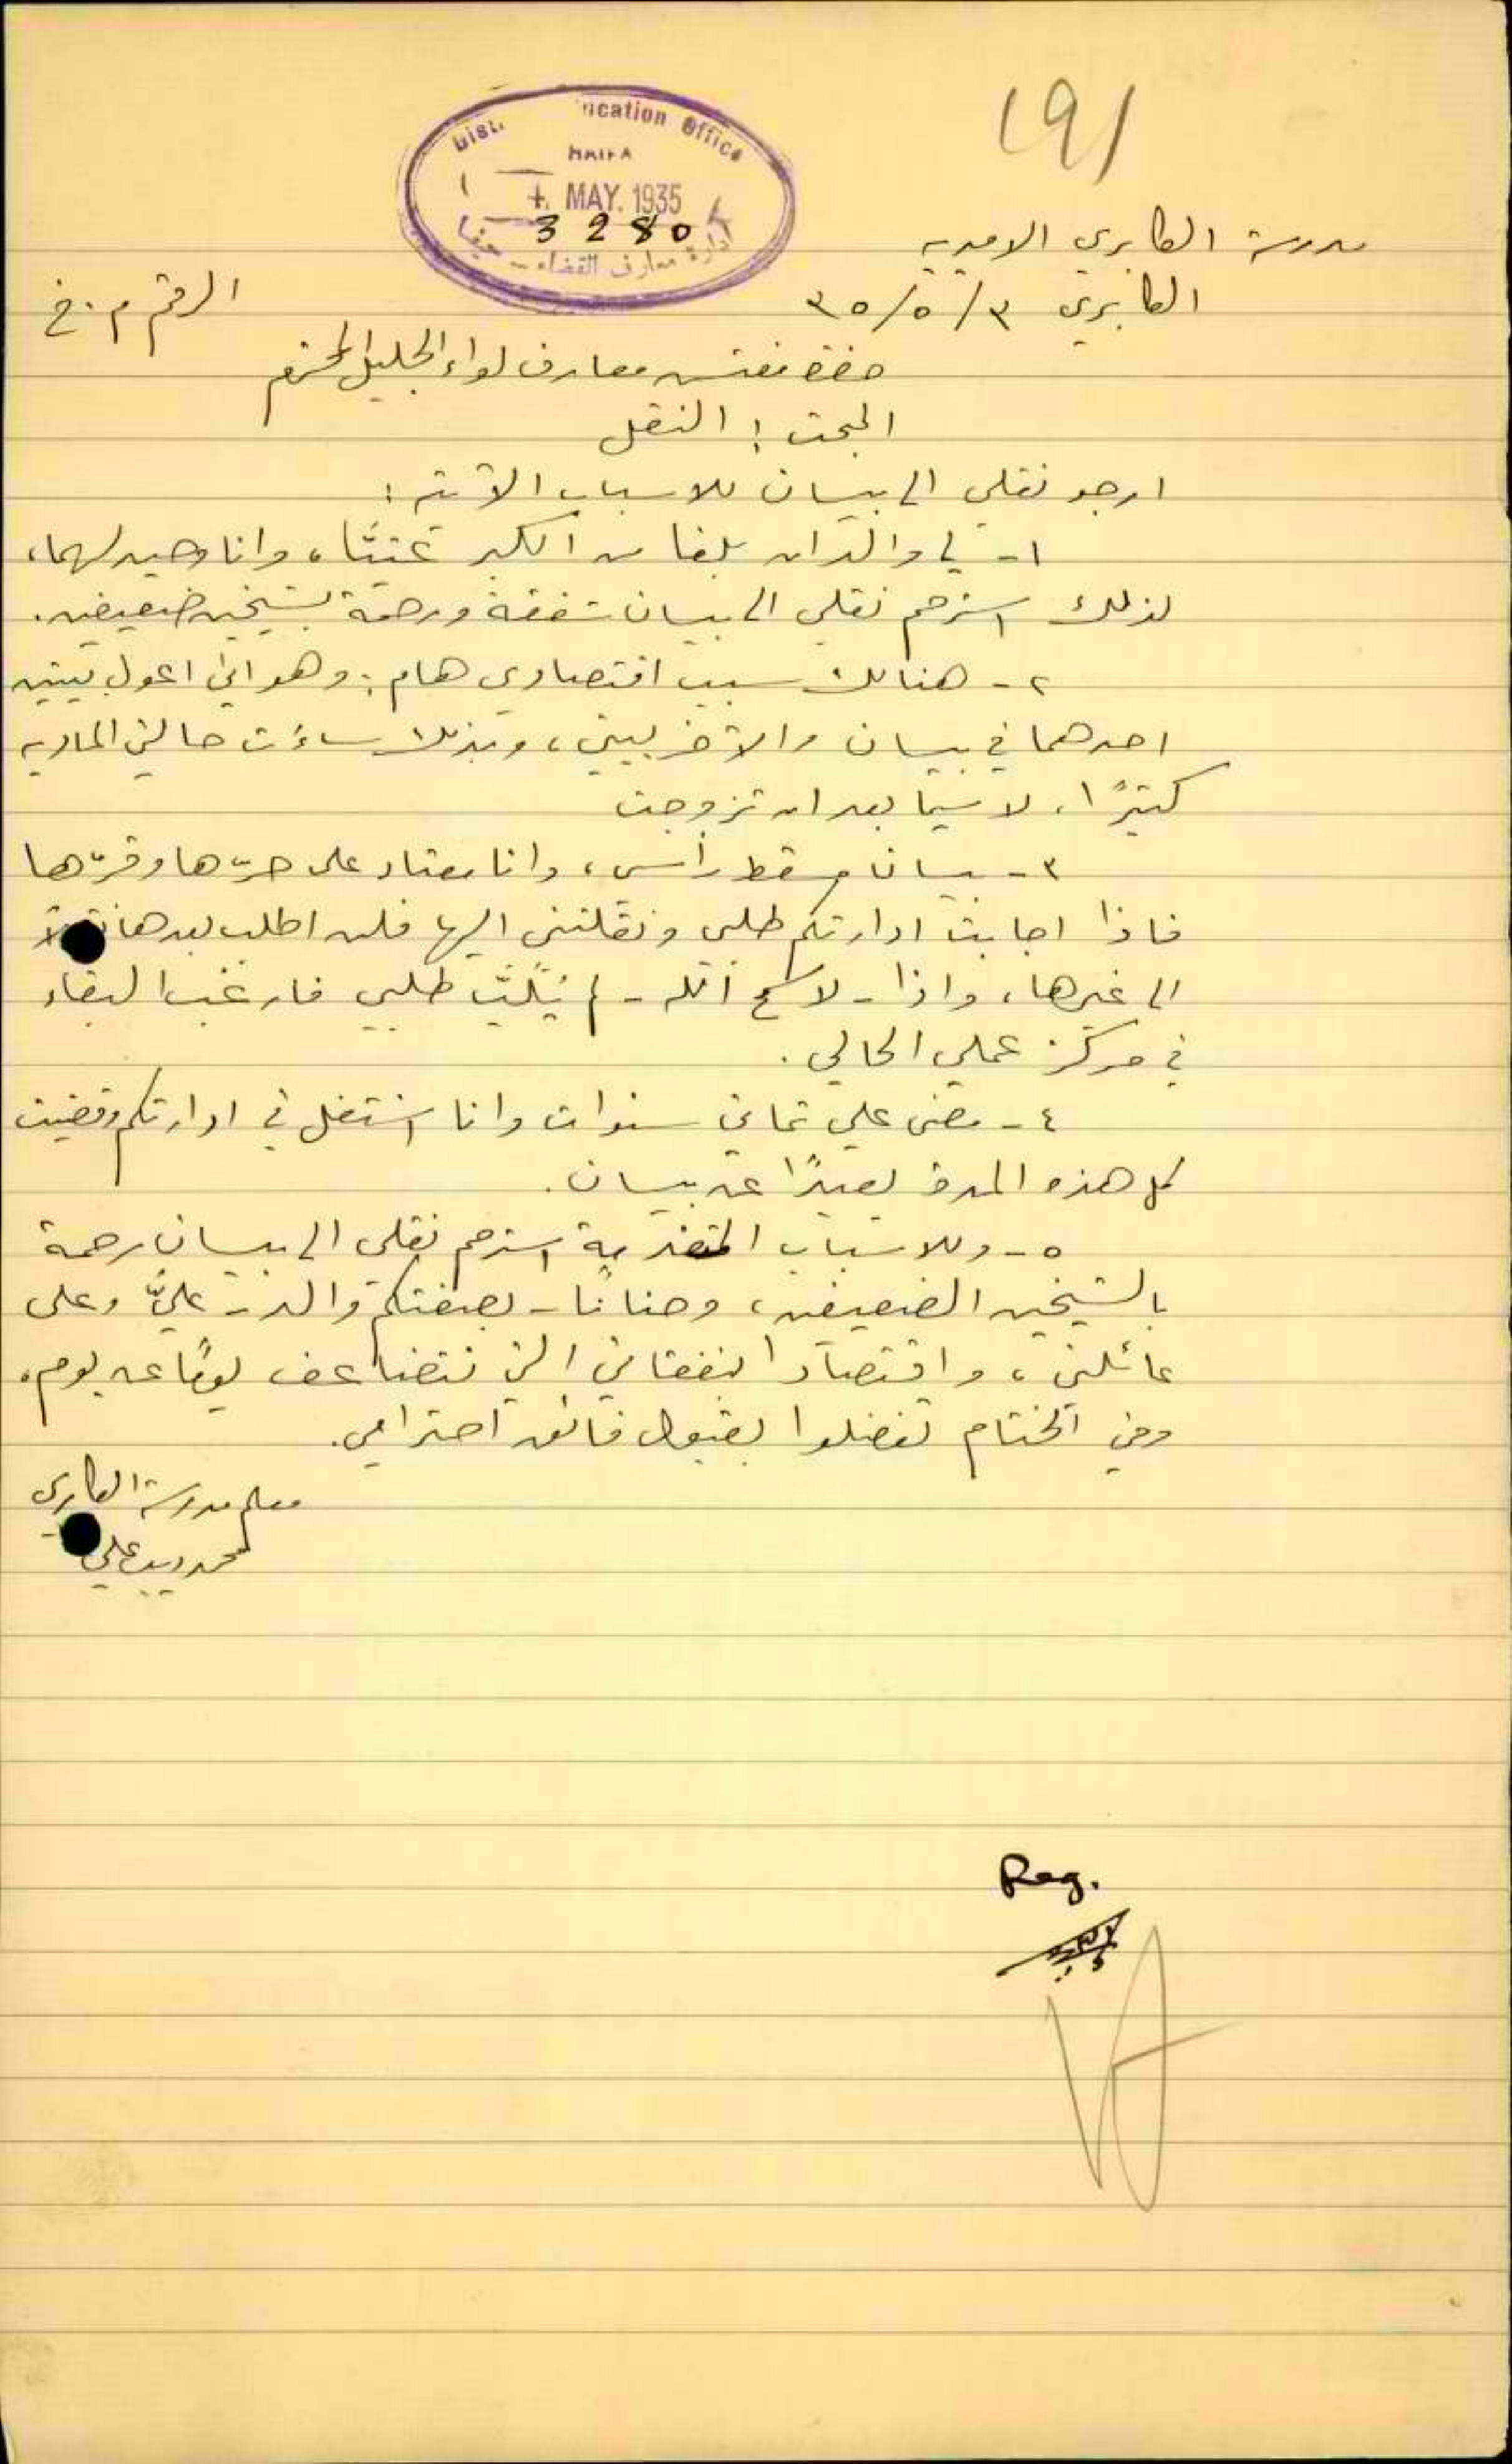 191
Dist. ucation Office
HAIFA
4. MAY. 1935
3280
ادارة معارف القضاء - حيفا
مدرسة الكابري الاميريه
الكابري ٣/٥/٣٥
الرقم م.خ
حضرة مفتش معارف لواء الجليل المحترم
المبحث: النقل
ارجو نقلي الى بيسان للاسباب الآتية:
١- لي والدان بلغا من الكبر عتيًّا، وانا وحيد لهما،
لذلك استرحم نقلي الى بيسان شفقة ورحمة بشيخين ضعيفين.
٢- هنالك سبب اقتصادي هام: وهو اني اعول بيتين
احدهما في بيسان والآخر بيتي، وبذلك ساءت حالتي الماديه
كثيرًا، لا سيما بعد ان تزوجت
٣- بيسان مسقط رأسي، وانا معتاد على حرّها وقرّها
فاذا اجابت ادارتكم طلبي ونقلتني اليها فلن اطلب بعدها نقلاً
الى غيرها، واذا - لا سمح الله - لم يُلَبَّ طلبي فارغب البقاء
في مركز عملي الحالي.
٤- مضى علي ثماني سنوات وانا اشتغل في ادارتكم وقضيت
كل هذه المدة بعيدًا عن بيسان.
٥- وللاسباب المتقدمة استرحم نقلي الى بيسان رحمة
بالشيخين الضعيفين، وحنانًا - بصفتكم والد - عليّ وعلى
عائلتي، واقتصادًا لنفقاتي التي تتضاعف يومًا عن يوم.
وفي الختام تفضلوا بقبول فائق احترامي.
معلم مدرسة الكابري
محمد ديب علي
Reg.